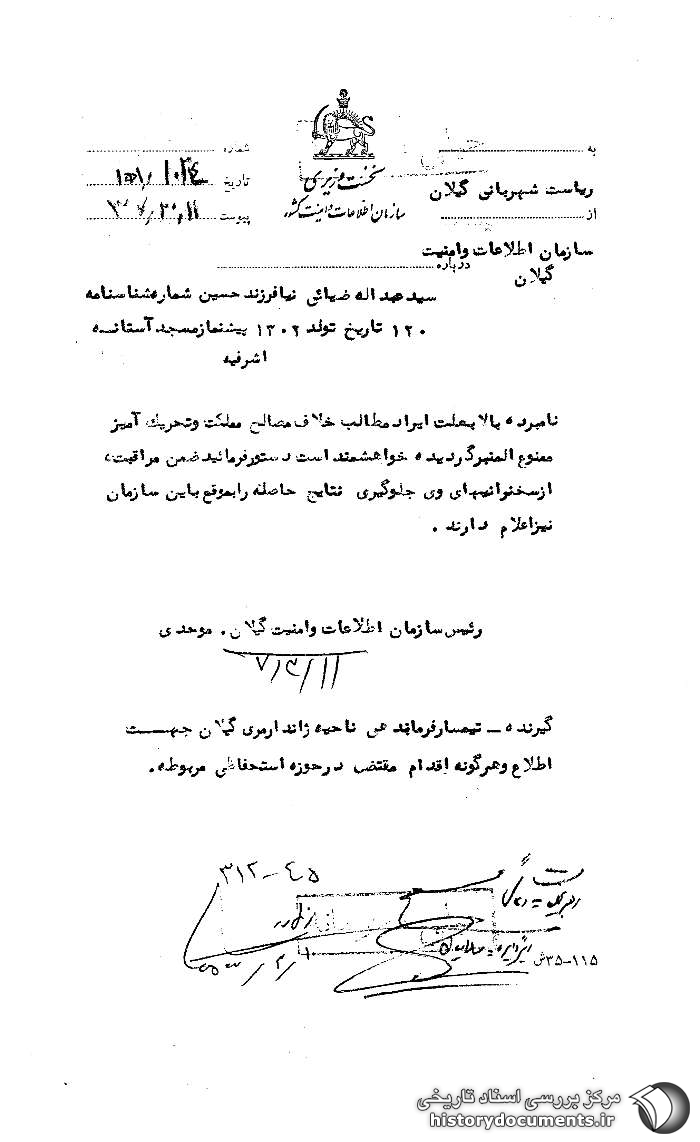 نخست وزیری
سازمان اطلاعات و امنیت کشور
شماره
تاریخ
پیوست
به
ریاست شهربانی گیلان
از
سازمان اطلاعات وامنیت
گیلان
درباره
سید عبداله ضیائی نیا فرزند حسین شماره شناسنامه
۱۲۰ تاریخ تولد ۱۳۰۲ پیشنماز مسجد آستانه
اشرفیه
نامبرده بالا بعلت ایراد مطالب خلاف مصالح مملکت وتحریک آمیز
ممنوع المنبر گردیده خواهشمند است دستور فرمائید ضمن مراقبت،
از سخنرانیهای وی جلوگیری نتایج حاصله را بموقع باین سازمان
نیز اعلام دارند .
رئیس سازمان اطلاعات وامنیت گیلان . موحدی
۷/۳/۱۱
گیرنده ـ تیمسار فرماندهی ناحیه ژاندارمری گیلان جهت
اطلاع وهرگونه اقدام مقتضی در حوزه استحفاظی مربوطه .
۳۱۲-۴۵
۳۵-۱۱۵ش
مرکز بررسی اسناد تاریخی
historydocuments.ir